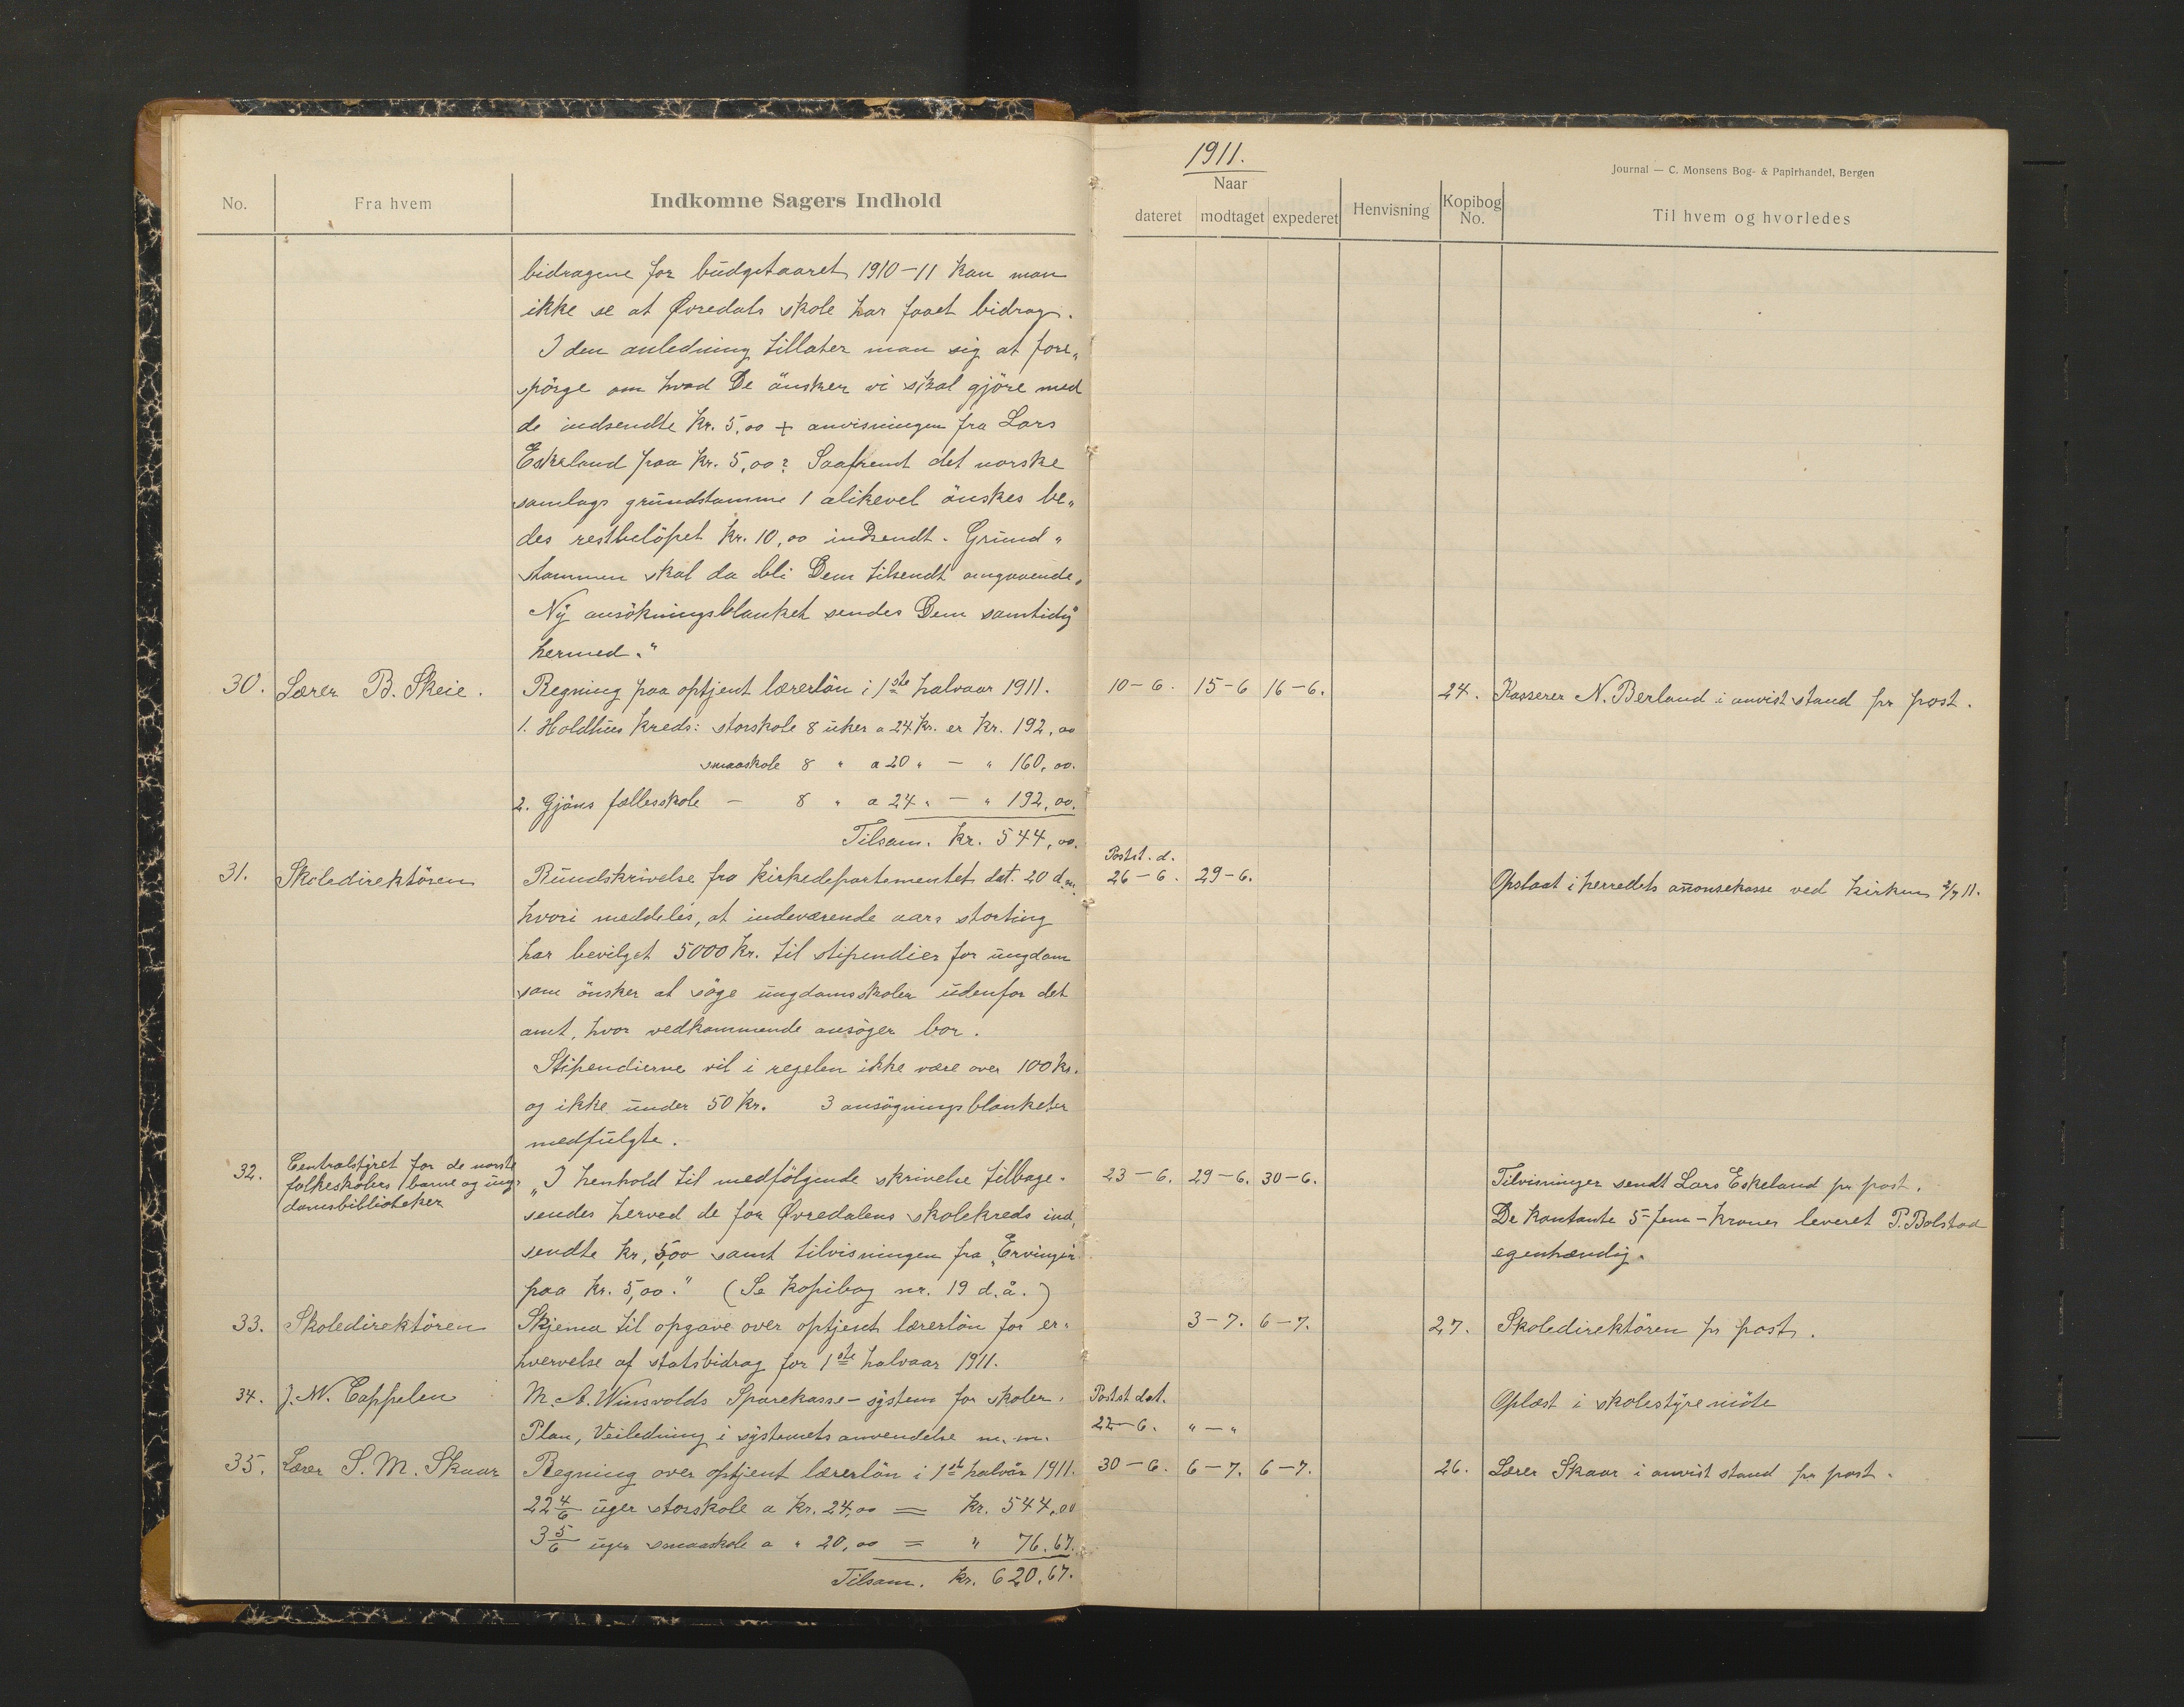 1911.
Journal — C. Monsens Bog- & Papirhandel, Bergen
No.
Fra hvem
Indkomne Sagers Indhold
Naar
dateret
modtaget
expederet
Henvisning
Kopibog No.
Til hvem og hvorledes
bidragene for budgetaaret 1910-11 kan man
ikke se at Øvredals skole har faaet bidrag.
I den anledning tillater man sig at fore„
spörge om hvad De önsker vi skal gjöre med
de indsendte kr. 5,00 + anvisningen fra Lars
Eskeland paa kr. 5,00? Saafremt det norske
samlags grundstamme 1 alikevel önskes be„
des restbelöpet kr. 10,00 indsendt. Grund„
stammen skal da bli Dem tilsendt omgaaende.
Ny ansökningsblanket sendes Dem samtidig
hermed."
30. Lærer B. Skeie. Regning paa optjent lærerlön i 1ste halvaar 1911. 10-6. 15-6 16-6. 24. Kasserer N. Berland i anvist stand pr post.
1. Holdhus kreds: storskole 8 uker a 24 kr. er kr. 192,00
smaaskole 8 " a 20 " — " 160,00.
2. Gjöns fællesskole — 8 " a 24 " — " 192,00.
Tilsam. kr. 544,00.
31. Skoledirektören Rundskrivelse fra kirkedepartementet dat. 20 d.m. Postst. d. 26-6. 29-6. Opslaat i herredets anonsekasse ved kirken 2/7 11.
hvori meddeles, at indeværende aars storting
har bevilget 5000 kr. til stipendier for ungdom
som önsker at söge ungdomsskoler udenfor det
amt, hvor vedkommende ansöger bor.
Stipendierne vil i regelen ikke være over 100 kr.
og ikke under 50 kr. 3 ansögningsblanketer
medfulgte.
32. Centralstyret for de norske
folkeskolers barne og ung„
domsbiblioteker
„I henhold til medfölgende skrivelse tilbage- 23-6. 29-6. 30-6. Tilvisninger sendt Lars Eskeland pr post.
sendes herved de for Øvredalens skolekreds ind„ De kontante 5-fem-kroner leveret P. Bolstad
sendte kr. 5,00 samt tilvisningen fra „Ervingen egenhændig.
paa kr. 5,00." (Se kopibog nr. 19 d.å.)
33. Skoledirektören Skjema til opgave over optjent lærerlön for er- 3-7. 6-7. 27. Skoledirektören pr post.
hvervelse af statsbidrag for 1ste halvaar 1911.
34. J. W. Cappelen M. A. Winsvolds Sparekasse-system for skoler. Postst dat. Oplæst i skolestyremöte
Plan, Veiledning i systemets anvendelse m. m. 22-6. "-"
35. Lærer S. M. Skaar Regning over optjent lærerlön i 1st halvår 1911. 30-6. 6-7. 6-7. 26. Lærer Skaar i anvist stand pr post.
22 4/6 uger storskole a kr. 24,00 = kr. 544,00
3 5/6 uger smaaskole a " 20,00 = " 76.67.
Tilsam. kr. 620,67.